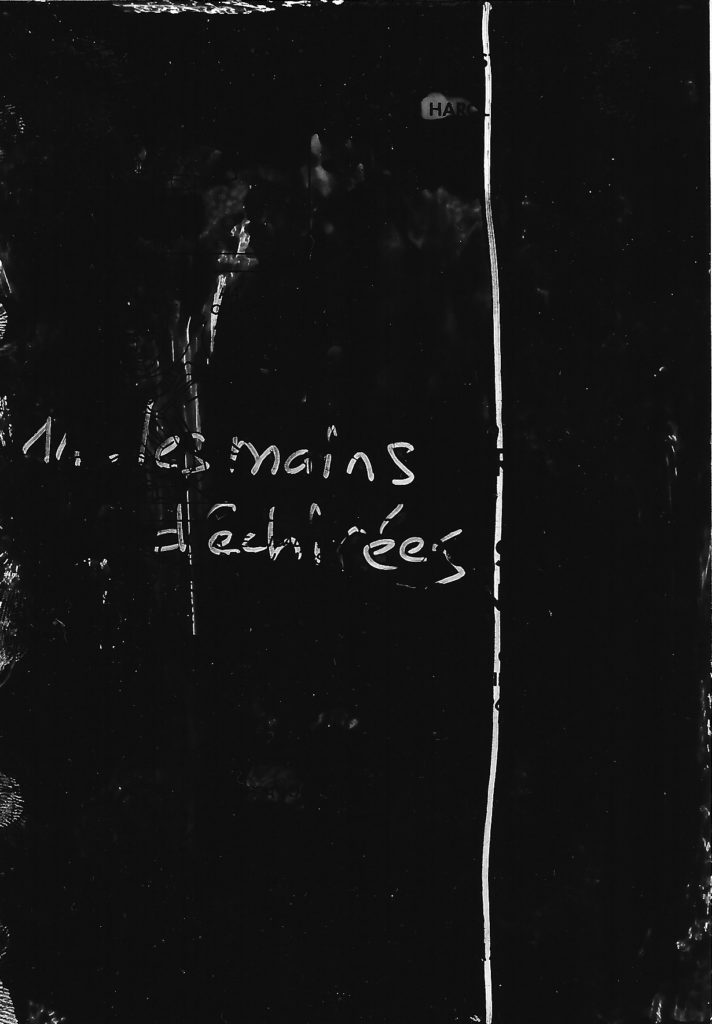 les mains
déchirées